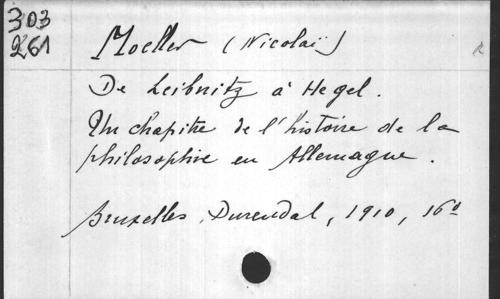 303
261
Moeller (Nicolaï)
De Leibnitz à Hegel.
Un chapitre de l'histoire de la
philosophie en Allemagne.
Bruxelles, Durendal, 1910, 16º